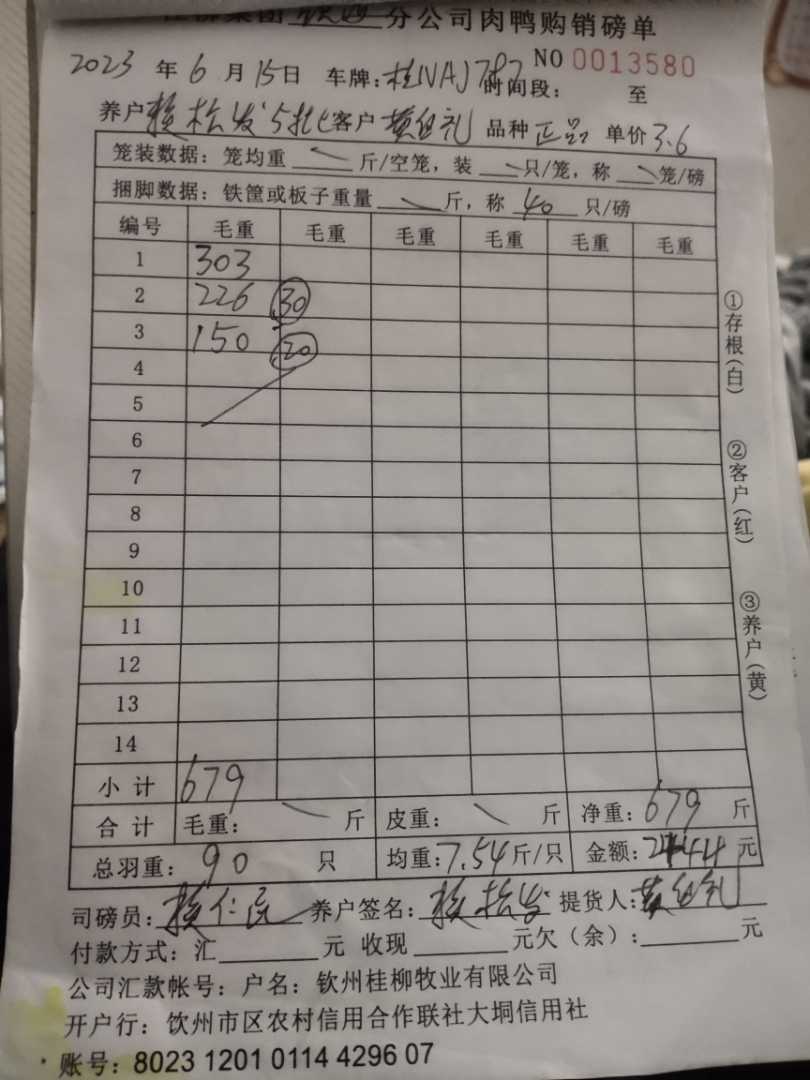 集团 分公司肉鸭购销磅单
2023年6月15日 车牌:桂NAJ787 NO 0013580
时间段: 至
养户 客户 品种 正品 单价 3.6
笼装数据:笼均重 斤/空笼,装 只/笼,称 笼/磅
捆脚数据:铁筐或板子重量 斤,称 40 只/磅
编号 毛重 毛重 毛重 毛重 毛重 毛重
1 303
2 226 30
3 150 20
4
5
6
7
8
9
10
11
12
13
14
小计 679
合计 毛重: 斤 皮重: 斤 净重:679 斤
总羽重:90 只 均重:7.54斤/只 金额:2444元
司磅员: 养户签名: 提货人:
付款方式:汇 元 收现 元欠(余): 元
公司汇款帐号:户名:钦州桂柳牧业有限公司
开户行:钦州市区农村信用合作联社大垌信用社
账号:8023 1201 0114 4296 07
①存根(白)
②客户(红)
③养户(黄)